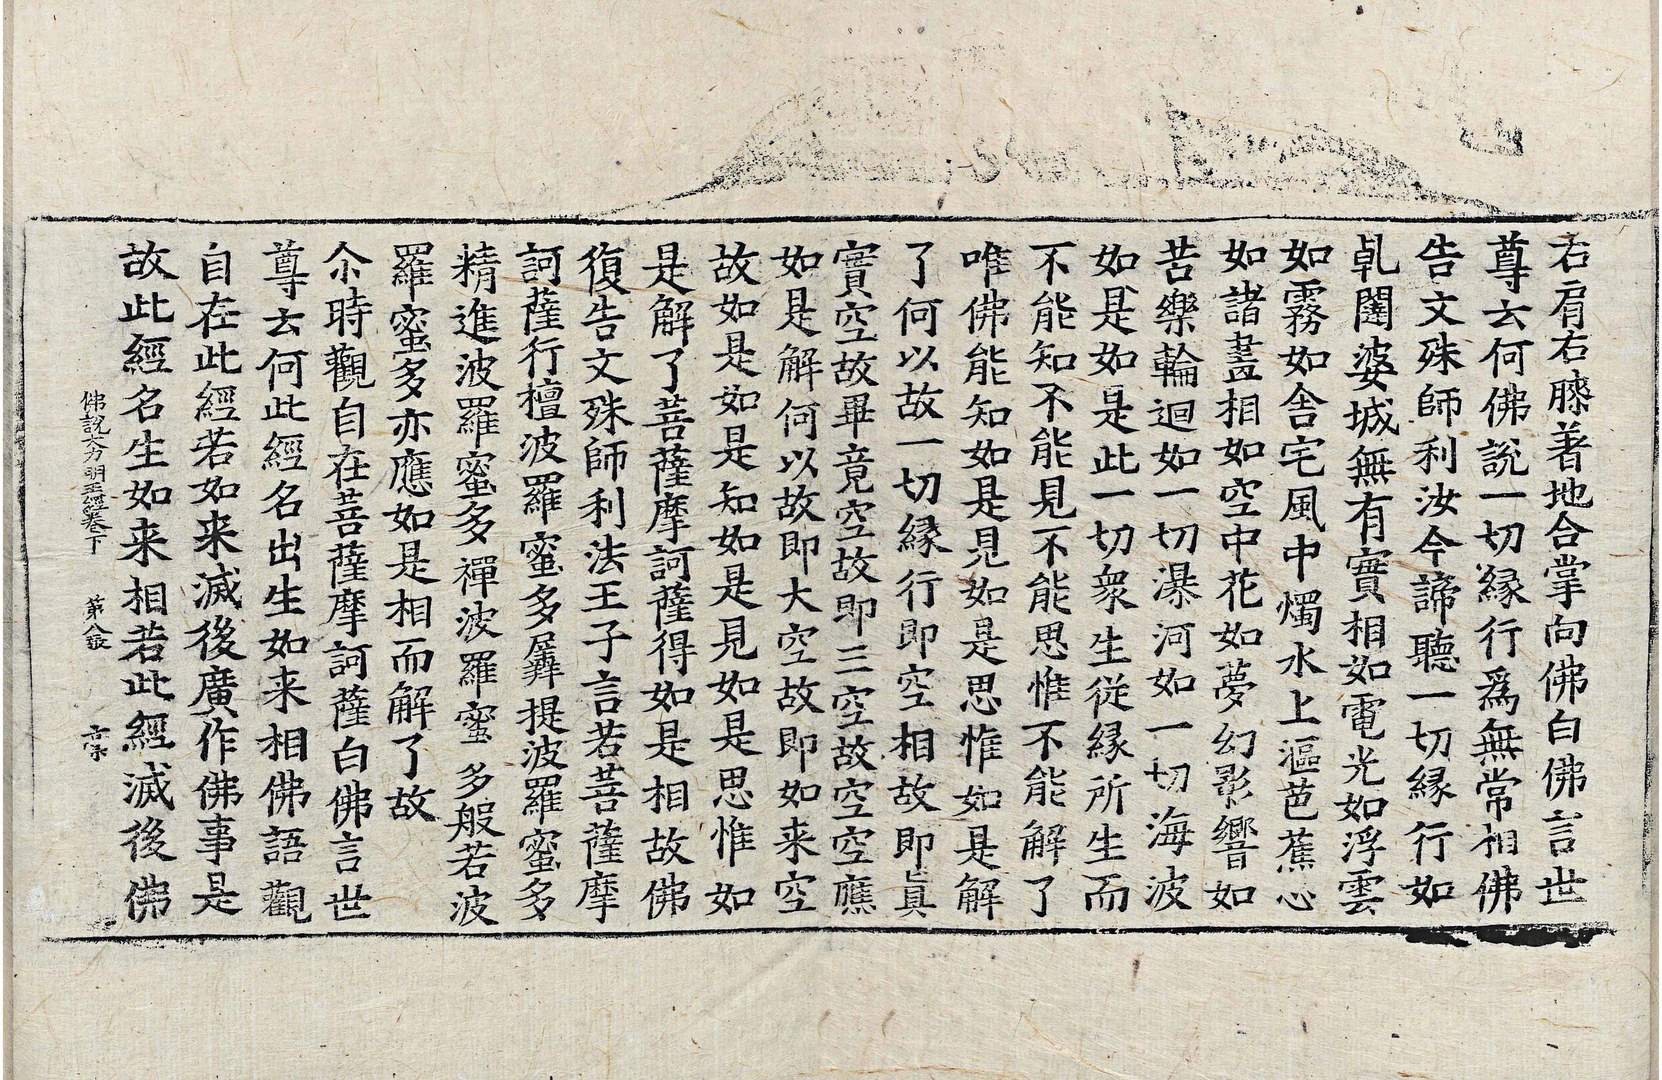 右肩右膝著地合掌向佛白佛言世
尊云何佛說一切縁行爲無常相佛
告文殊師利汝今諦聽一切縁行如
乹闥婆城無有實相如電光如浮雲
如霧如舎宅風中燭水上漚芭蕉心
如諸畫相如空中花如夢幻影響如
苦樂輪迴如一切瀑河如一切海波
如是如是此一切衆生従縁所生而
不能知不能見不能思惟不能解了
唯佛能知如是見如是思惟如是解
了何以故一切縁行即空相故即眞
實空故畢竟空故即三空故空空應
如是解何以故即大空故即如来空
故如是如是知如是見如是思惟如
是解了菩薩摩訶薩得如是相故佛
復告文殊師利法王子言若菩薩摩
訶薩行檀波羅蜜多羼提波羅蜜多
精進波羅蜜多禪波羅蜜多般若波
羅蜜多亦應如是相而解了故
尒時觀自在菩薩摩訶薩白佛言世
尊云何此經名出生如来相佛語觀
自在此經若如来滅後廣作佛事是
故此經名生如来相若此經滅後佛
佛說大方明王經卷下 第八張 宗